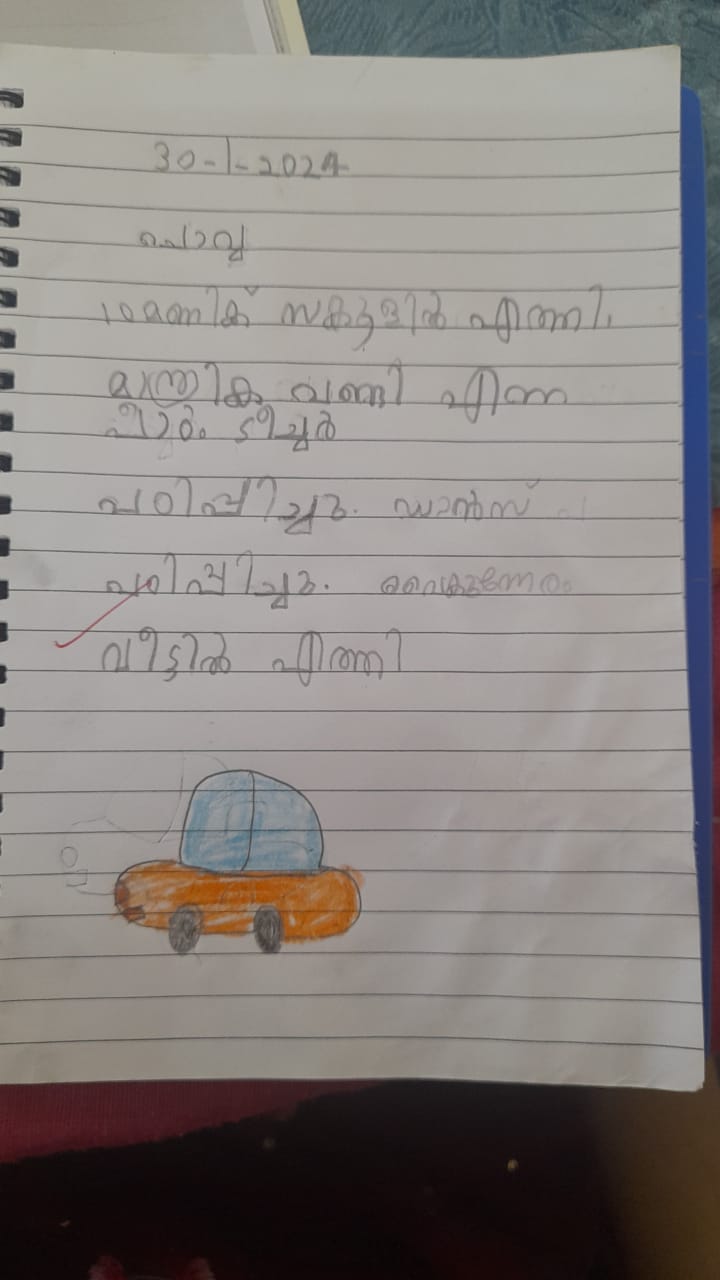 30-1-2024
ചൊവ്വ
10മണിക് സകൂളിൽ എത്തി.
മന്ത്രിക വണ്ടി എന്ന
പാഠം ടീച്ചർ
പഠിപ്പിച്ചു. ഡാൻസ്
പഠിപ്പിച്ചു. വൈകുന്നേരം
വീട്ടിൽ എത്തി